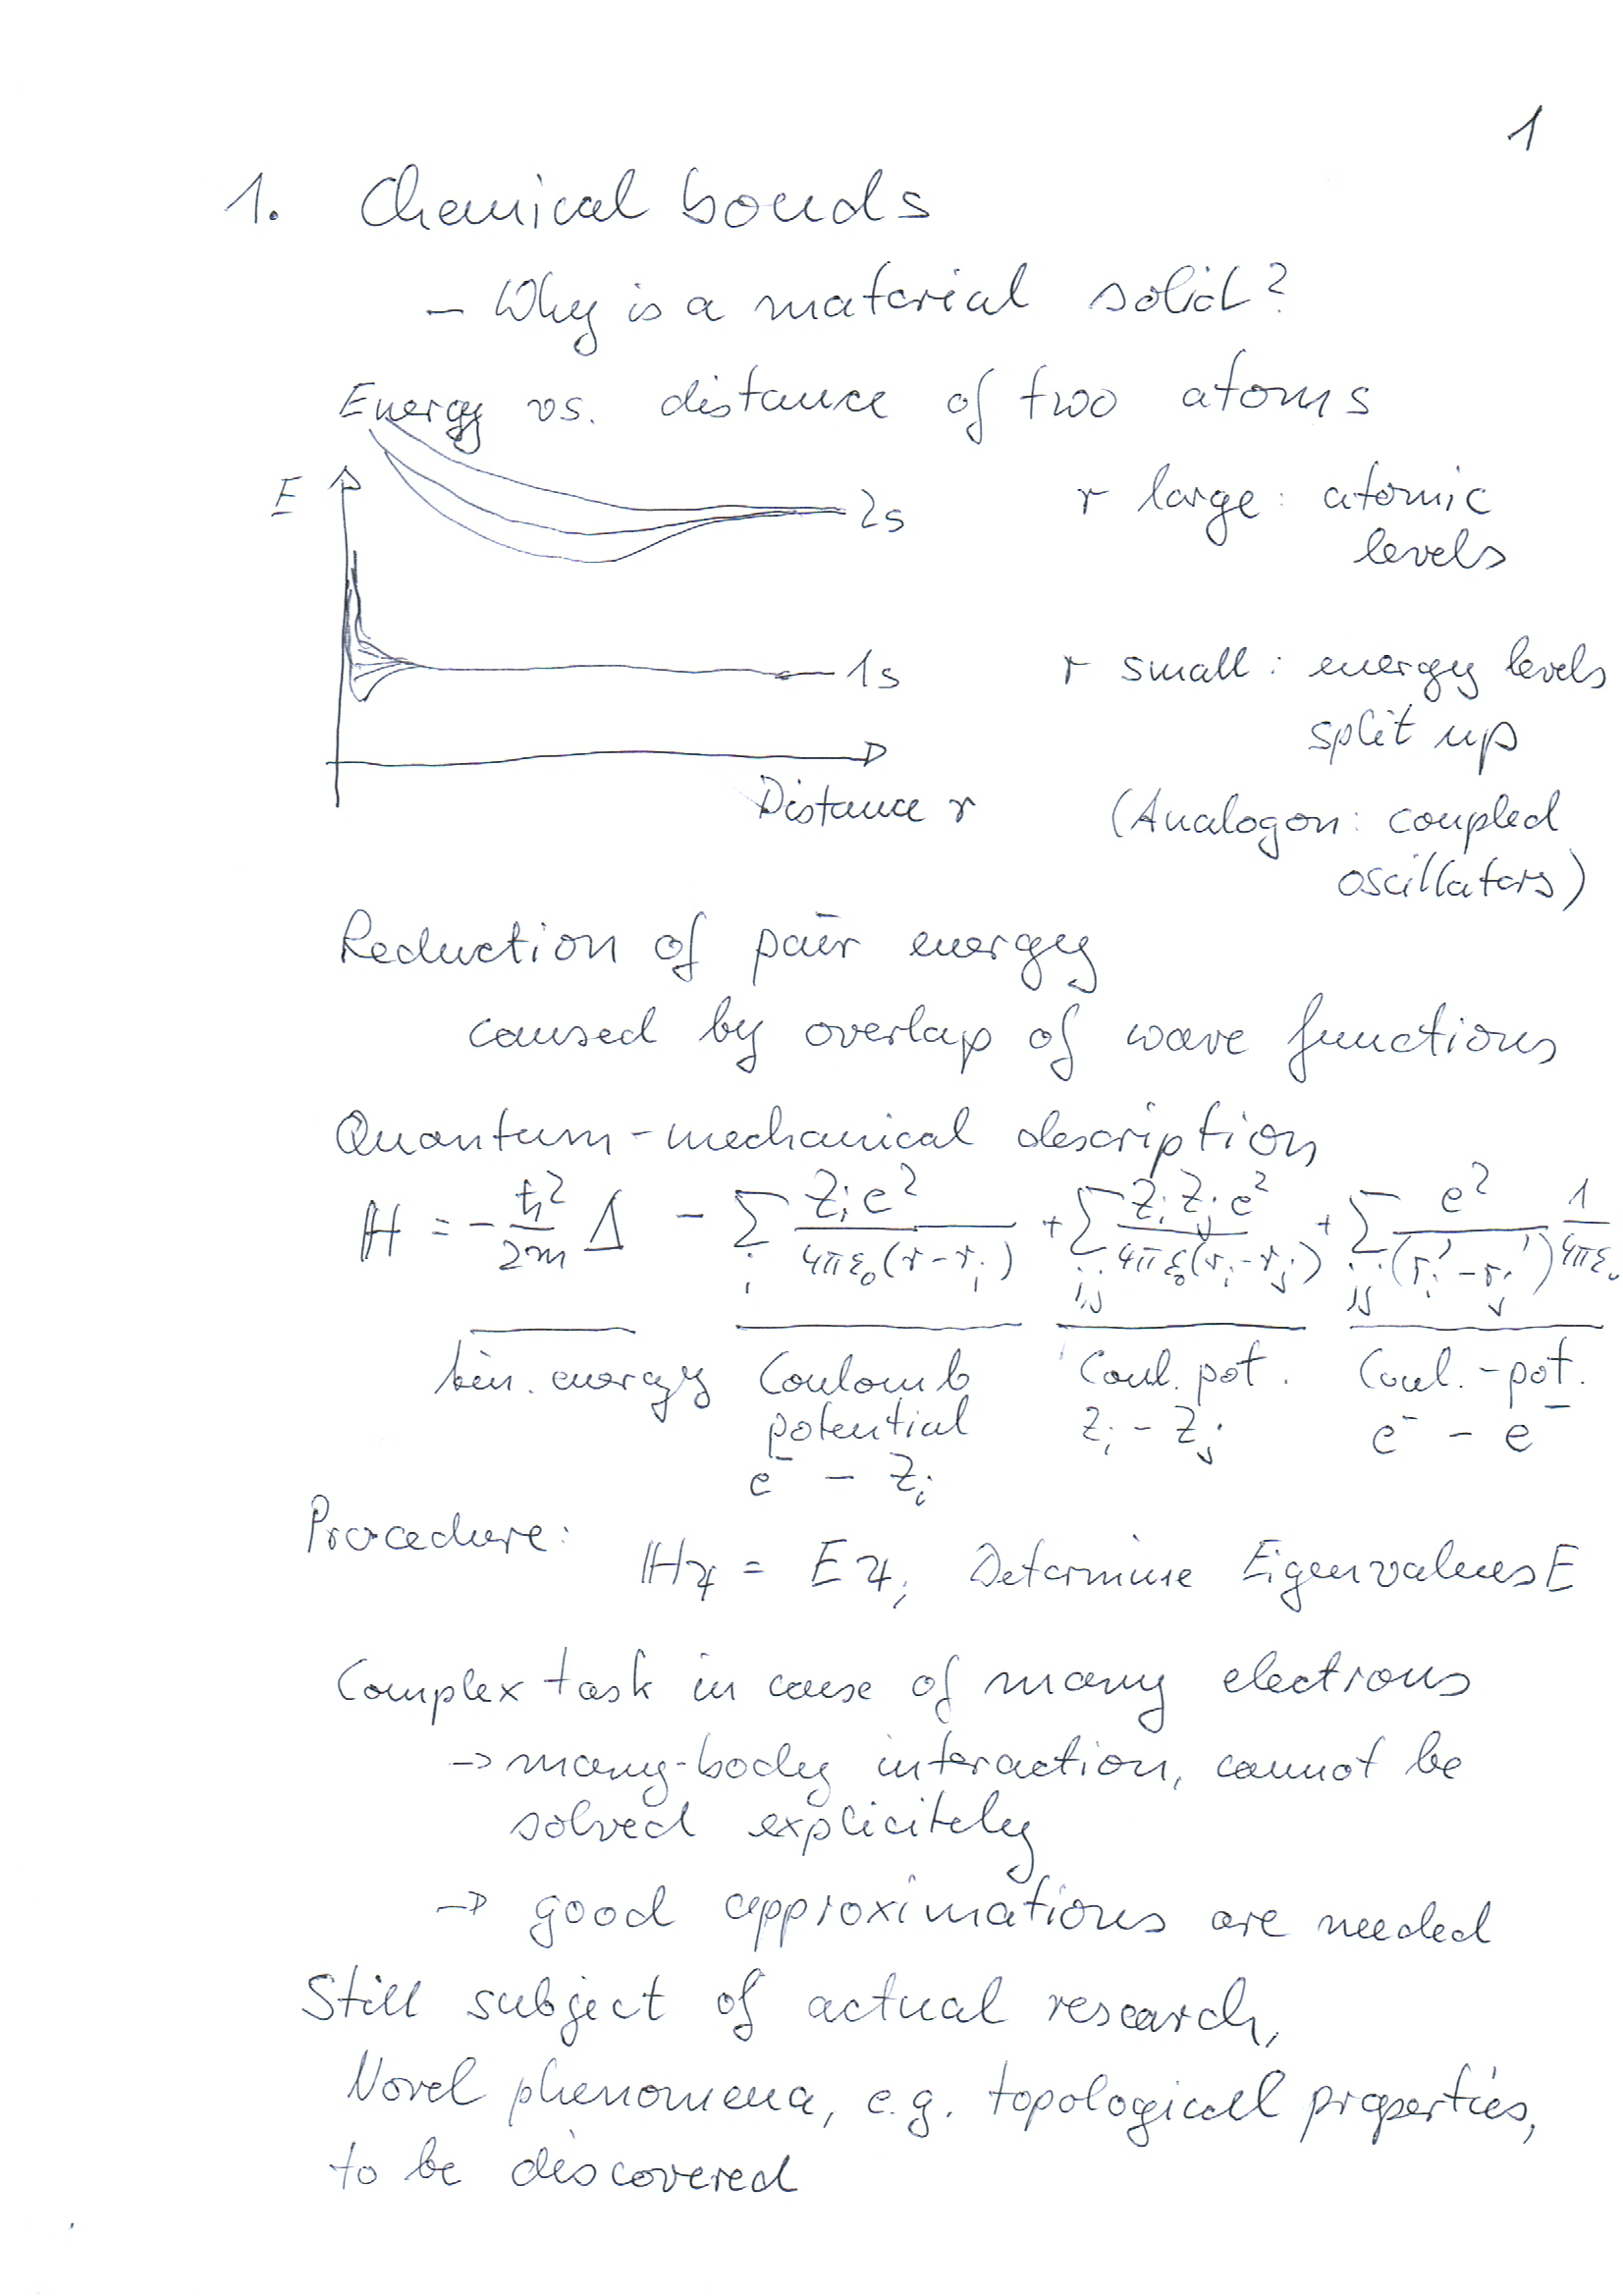 1
1. Chemical bonds
– Why is a material solid?
Energy vs. distance of two atoms
E
2s
r large: atomic
levels
1s
r small: energy levels
split up
Distance r
(Analogon: coupled
oscillators)
Reduction of pair energy
caused by overlap of wave functions
Quantum-mechanical description
H = - ℏ²/2m Δ - Σ_i Z_i e²/(4πε₀(r-r_i)) + Σ_i,j Z_i Z_j e²/(4πε₀(r_i-r_j)) + Σ_ij e²/(r_i'-r_j') 1/4πε₀
kin. energy
Coulomb
potential
e⁻ – Z_i
Coul. pot.
Z_i – Z_j
Coul.-pot.
e⁻ – e⁻
Procedure:
Hψ = Eψ, Determine Eigenvalues E
Complex task in case of many electrons
→ many-body interaction, cannot be
solved explicitely
→ good approximations are needed
Still subject of actual research,
Novel phenomena, e.g. topological properties,
to be discovered